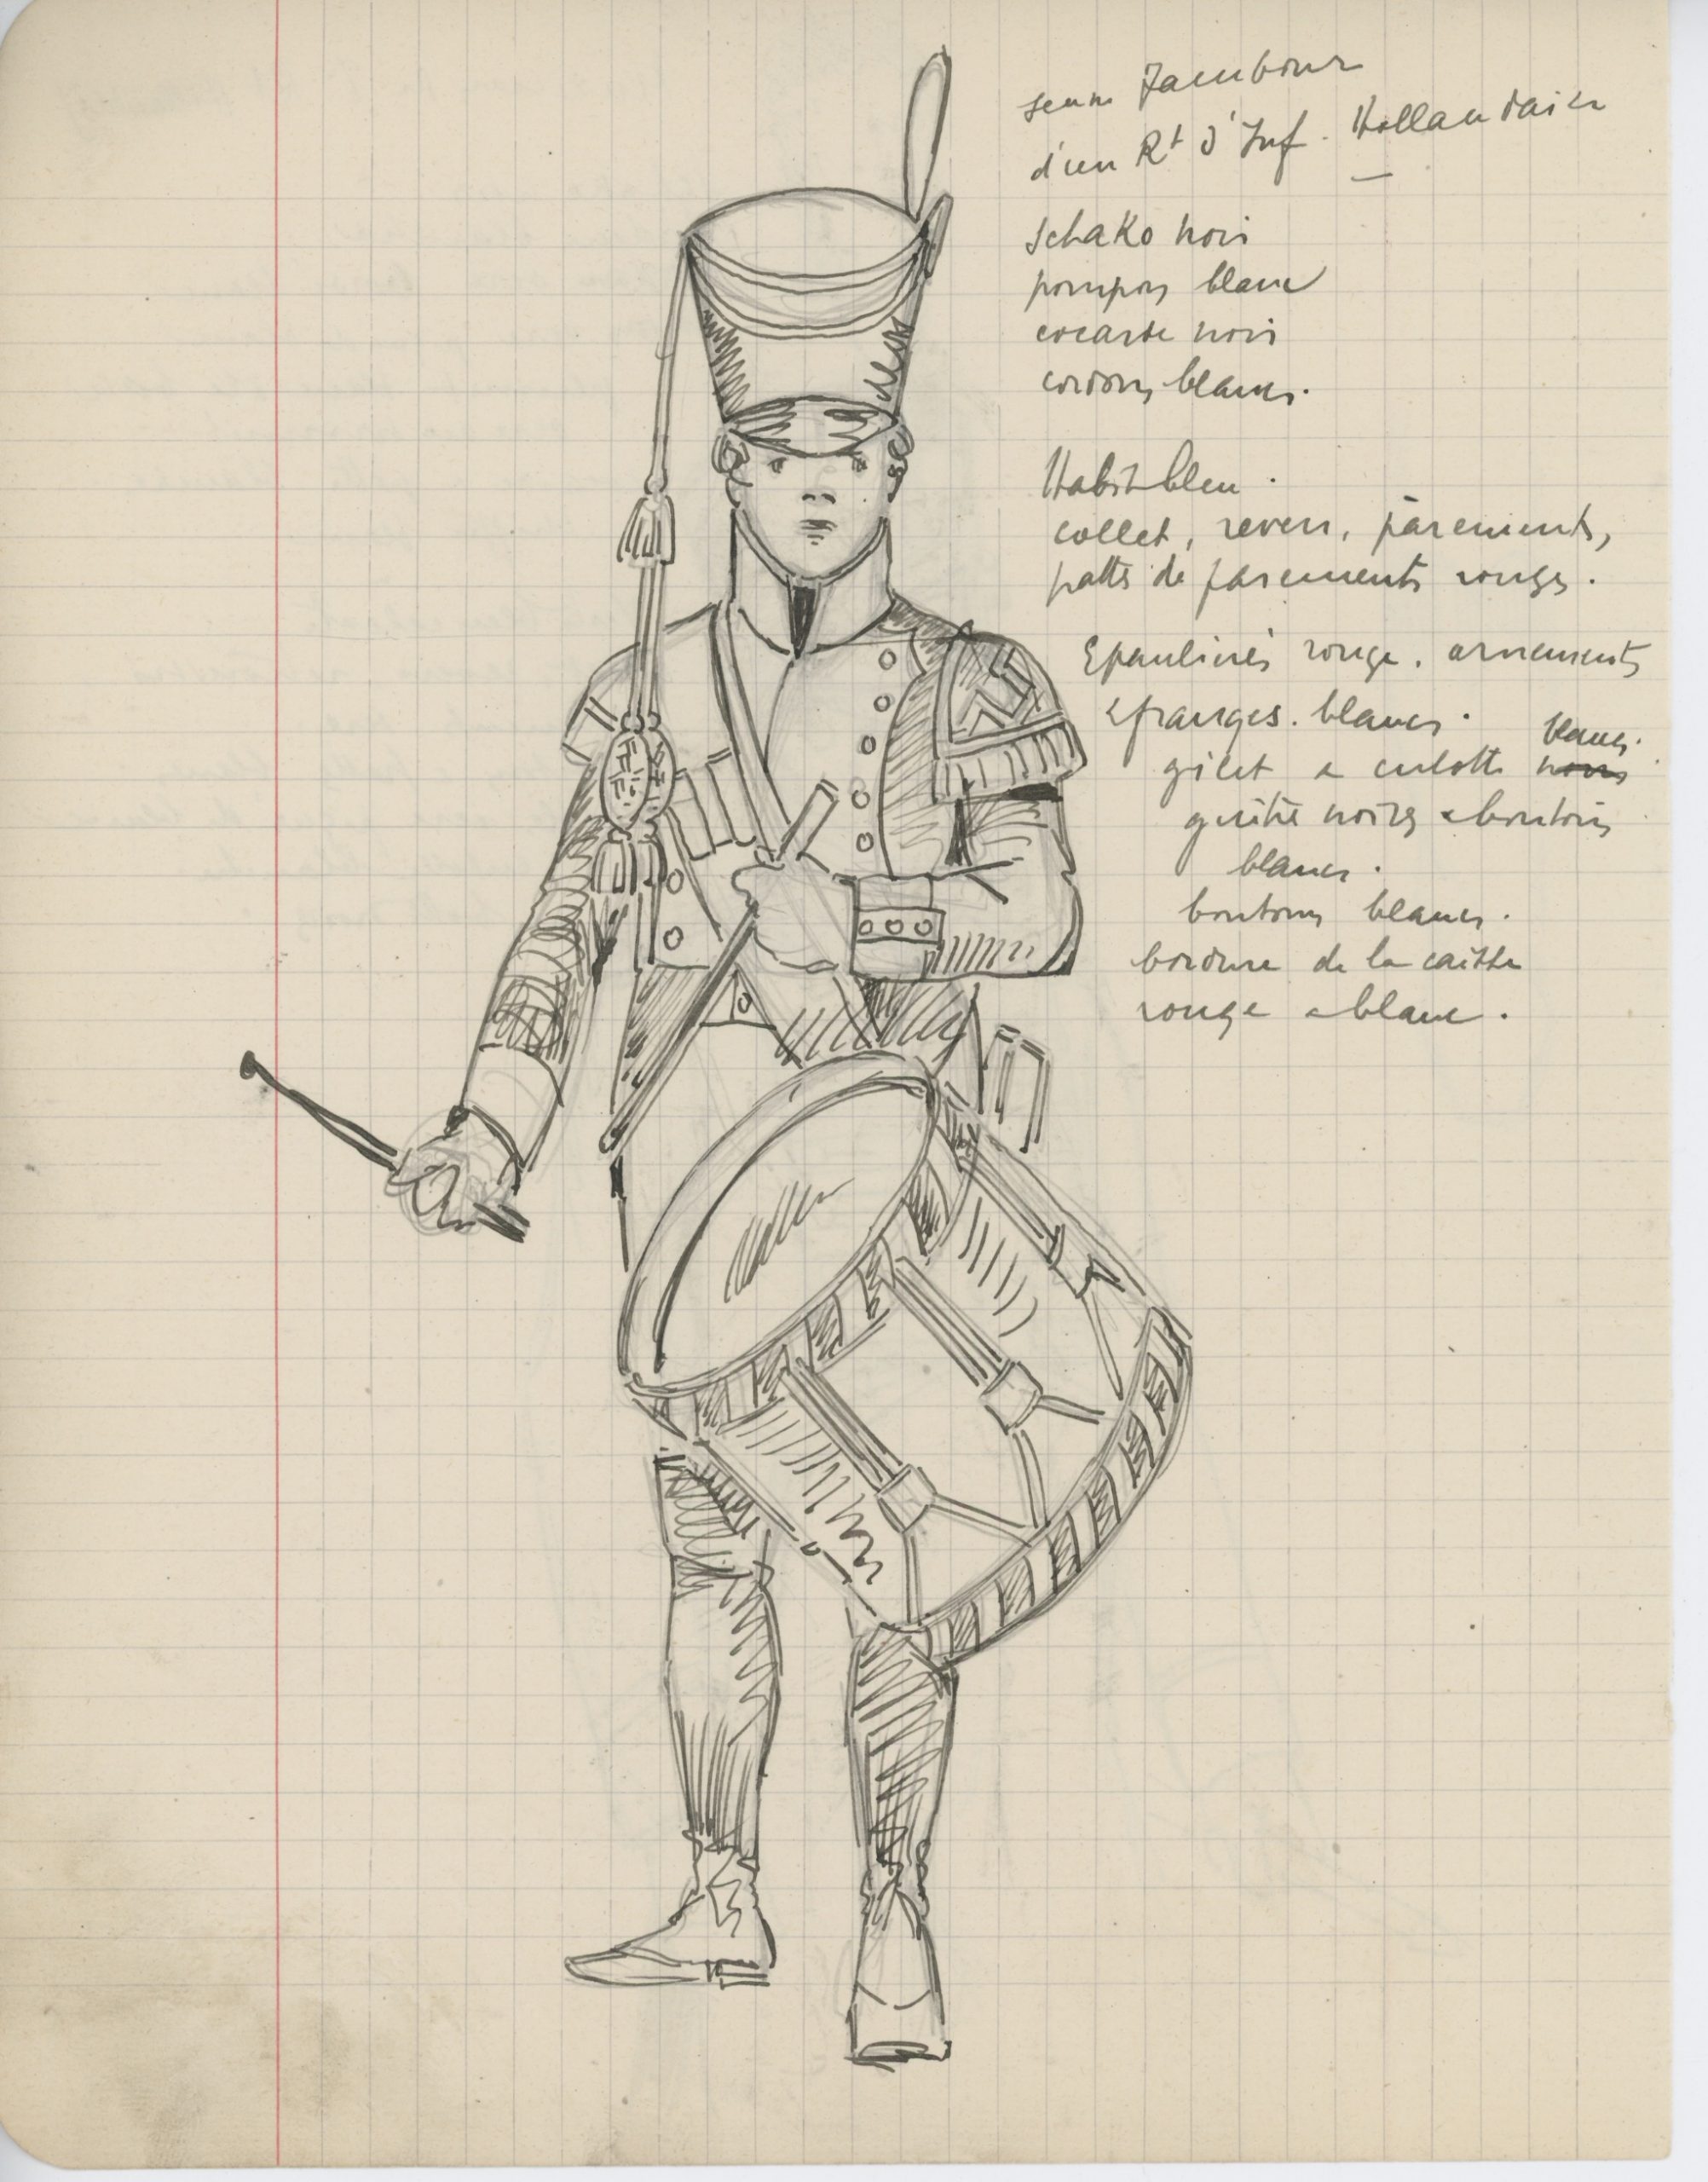 jeune Tambour
d'un Rt d'Inf. Hollandaise
Schako noir
pompon blanc
cocarde noir
cordons blancs.
Habit bleu.
collet, revers, parements,
patte de parements rouges.
Epaulières rouge. ornements
& franges. blancs.
gilet & culotte noirs blancs.
guêtre noires & boutons
blancs.
boutons blancs.
bordure de la caisse
rouge & blanc.